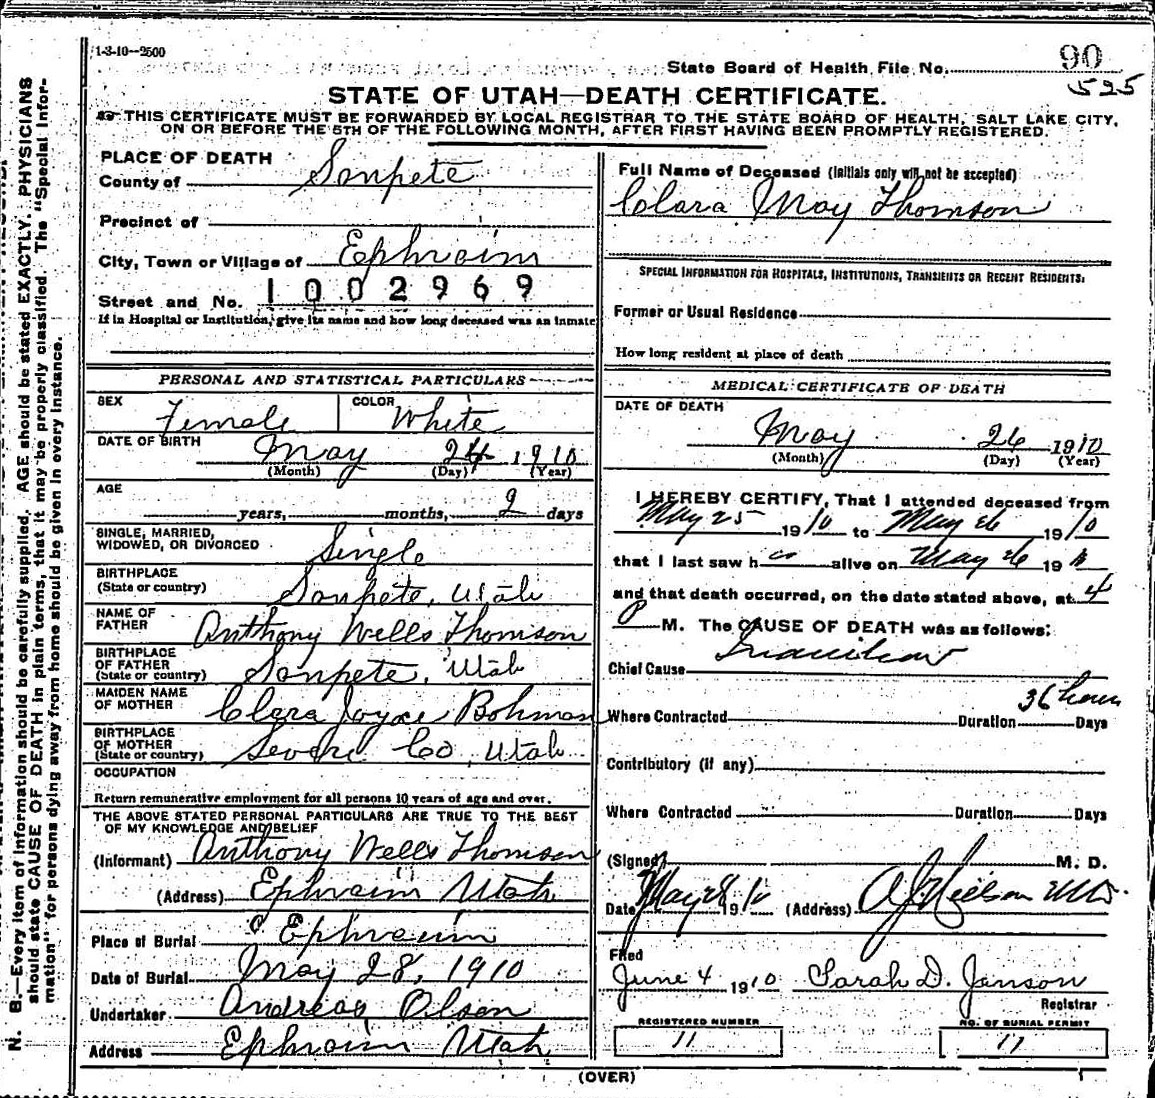 1-3-10--2500
State Board of Health File No. 90
525
STATE OF UTAH—DEATH CERTIFICATE.
THIS CERTIFICATE MUST BE FORWARDED BY LOCAL REGISTRAR TO THE STATE BOARD OF HEALTH, SALT LAKE CITY,
ON OR BEFORE THE 5TH OF THE FOLLOWING MONTH, AFTER FIRST HAVING BEEN PROMPTLY REGISTERED.
N. B.—Every item of Information should be carefully supplied. AGE should be stated EXACTLY. PHYSICIANS
should state CAUSE OF DEATH in plain terms, that it may be properly classified. The "Special Infor-
mation" for persons dying away from home should be given in every instance.
PLACE OF DEATH
County of Sanpete
Precinct of
City, Town or Village of Ephraim
Street and No. 1002969
If in Hospital or Institution, give its name and how long deceased was an inmate
PERSONAL AND STATISTICAL PARTICULARS
SEX Female COLOR White
DATE OF BIRTH May 24 1910
(Month) (Day) (Year)
AGE
years, months, 2 days
SINGLE, MARRIED,
WIDOWED, OR DIVORCED Single
BIRTHPLACE
(State or country) Sanpete, Utah
NAME OF
FATHER Anthony Wells Thomson
BIRTHPLACE
OF FATHER
(State or country) Sanpete, Utah
MAIDEN NAME
OF MOTHER Clara Joyce Bohman
BIRTHPLACE
OF MOTHER
(State or country) Sevier Co, Utah
OCCUPATION
Return remunerative employment for all persons 10 years of age and over.
THE ABOVE STATED PERSONAL PARTICULARS ARE TRUE TO THE BEST
OF MY KNOWLEDGE AND BELIEF
(Informant) Anthony Wells Thomson
(Address) Ephraim Utah
Place of Burial Ephraim
Date of Burial May 28, 1910
Undertaker Andreas Olsen
Address Ephraim Utah
Full Name of Deceased (Initials only will not be accepted)
Clara May Thomson
SPECIAL INFORMATION FOR HOSPITALS, INSTITUTIONS, TRANSIENTS OR RECENT RESIDENTS:
Former or Usual Residence
How long resident at place of death
MEDICAL CERTIFICATE OF DEATH
DATE OF DEATH
May 26 1910
(Month) (Day) (Year)
I HEREBY CERTIFY, That I attended deceased from
May 25 1910 to May 26 1910
that I last saw h alive on May 26 1910
and that death occurred, on the date stated above, at 4
P M. The CAUSE OF DEATH was as follows:
Chief Cause Inanition
36 hours
Where Contracted Duration Days
Contributory (if any)
Where Contracted Duration Days
(Signed) M. D.
Date May 28 1910 (Address) A J Nielson MD.
Filed
June 4 1910 Sarah D. Janson
Registrar
REGISTERED NUMBER
11
NO. OF BURIAL PERMIT
11
(OVER)